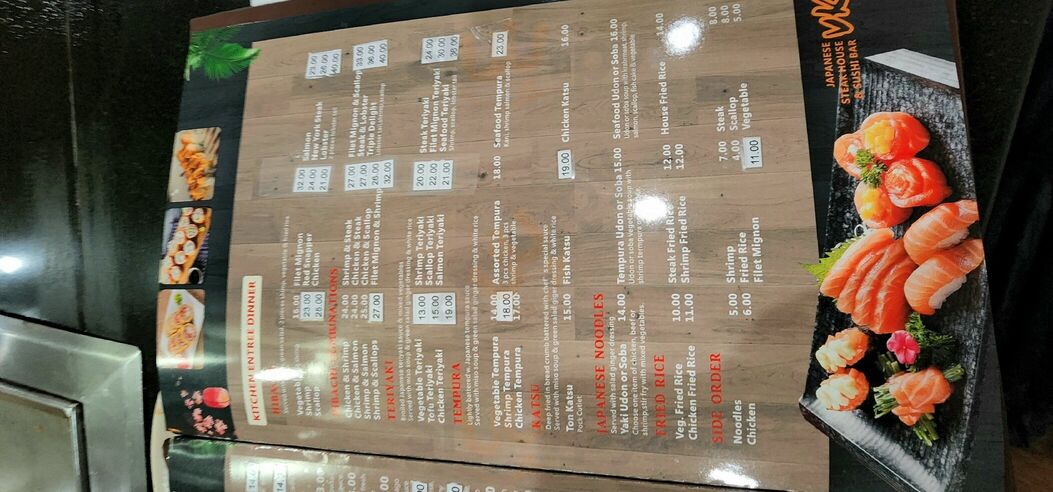 KITCHEN ENTREE DINNER
Vegetable 16.00 Filet Mignon 32.00 Salmon 23.00
Shrimp 23.00 Red Snapper 24.00 New York Steak 26.00
Scallop 26.00 Chicken 21.00 Lobster 40.00
COMBINATIONS
Chicken & Shrimp 24.00 Shrimp & Steak 27.00 Filet Mignon & Scallop 33.00
Chicken & Salmon 24.00 Chicken & Steak 27.00 Steak & Lobster 36.00
Shrimp & Salmon 25.00 Chicken & Scallop 26.00 Triple Delight 40.00
Shrimp & Scallops 27.00 Filet Mignon & Shrimp 32.00
TERIYAKI
Broiled Japanese teriyaki sauce & mixed vegetables
Served with miso soup & green salad ginger dressing & white rice
Vegetable Teriyaki 13.00 Shrimp Teriyaki 20.00 Steak Teriyaki 24.00
Tofu Teriyaki 15.00 Scallop Teriyaki 22.00 Filet Mignon Teriyaki 30.00
Chicken Teriyaki 19.00 Salmon Teriyaki 21.00 Seafood Teriyaki 36.00
Shrimp, scallop, lobster tail
TEMPURA
Lightly battered w. Japanese tempura batter
Served with miso soup & green salad ginger dressing & white rice
Vegetable Tempura 14.00 Assorted Tempura 18.00 Seafood Tempura 23.00
Shrimp Tempura 18.00 3 pcs chicken, 3 pcs shrimp & vegetable Kani, shrimp, salmon & scallop
Chicken Tempura 17.00
KATSU
Deep fried in bread crumb battered with chef's special sauce
Served with miso soup & green salad ginger dressing & white rice
Ton Katsu 15.00 Fish Katsu 19.00 Chicken Katsu 16.00
Pork Cutlet
JAPANESE NOODLES
Served with salad ginger dressing
Yaki Udon or Soba 14.00 Tempura Udon or Soba 15.00 Seafood Udon or Soba 16.00
Choose one from: chicken, beef or Udon or soba vegetable soup with Udon or soba soup with
shrimp stir fry with mixed vegetables. shrimp tempura on side salmon, scallop, fish cake & vegetable
FRIED RICE
Veg. Fried Rice 10.00 Steak Fried Rice 12.00 House Fried Rice
Chicken Fried Rice 11.00 Shrimp Fried Rice 12.00
SIDE ORDER
Noodles 5.00 Shrimp 7.00 Steak 8.00
Chicken 6.00 Fried Rice 4.00 Scallop 8.00
Filet Mignon 11.00 Vegetable 5.00
JAPANESE
STEAK HOUSE
& SUSHI BAR